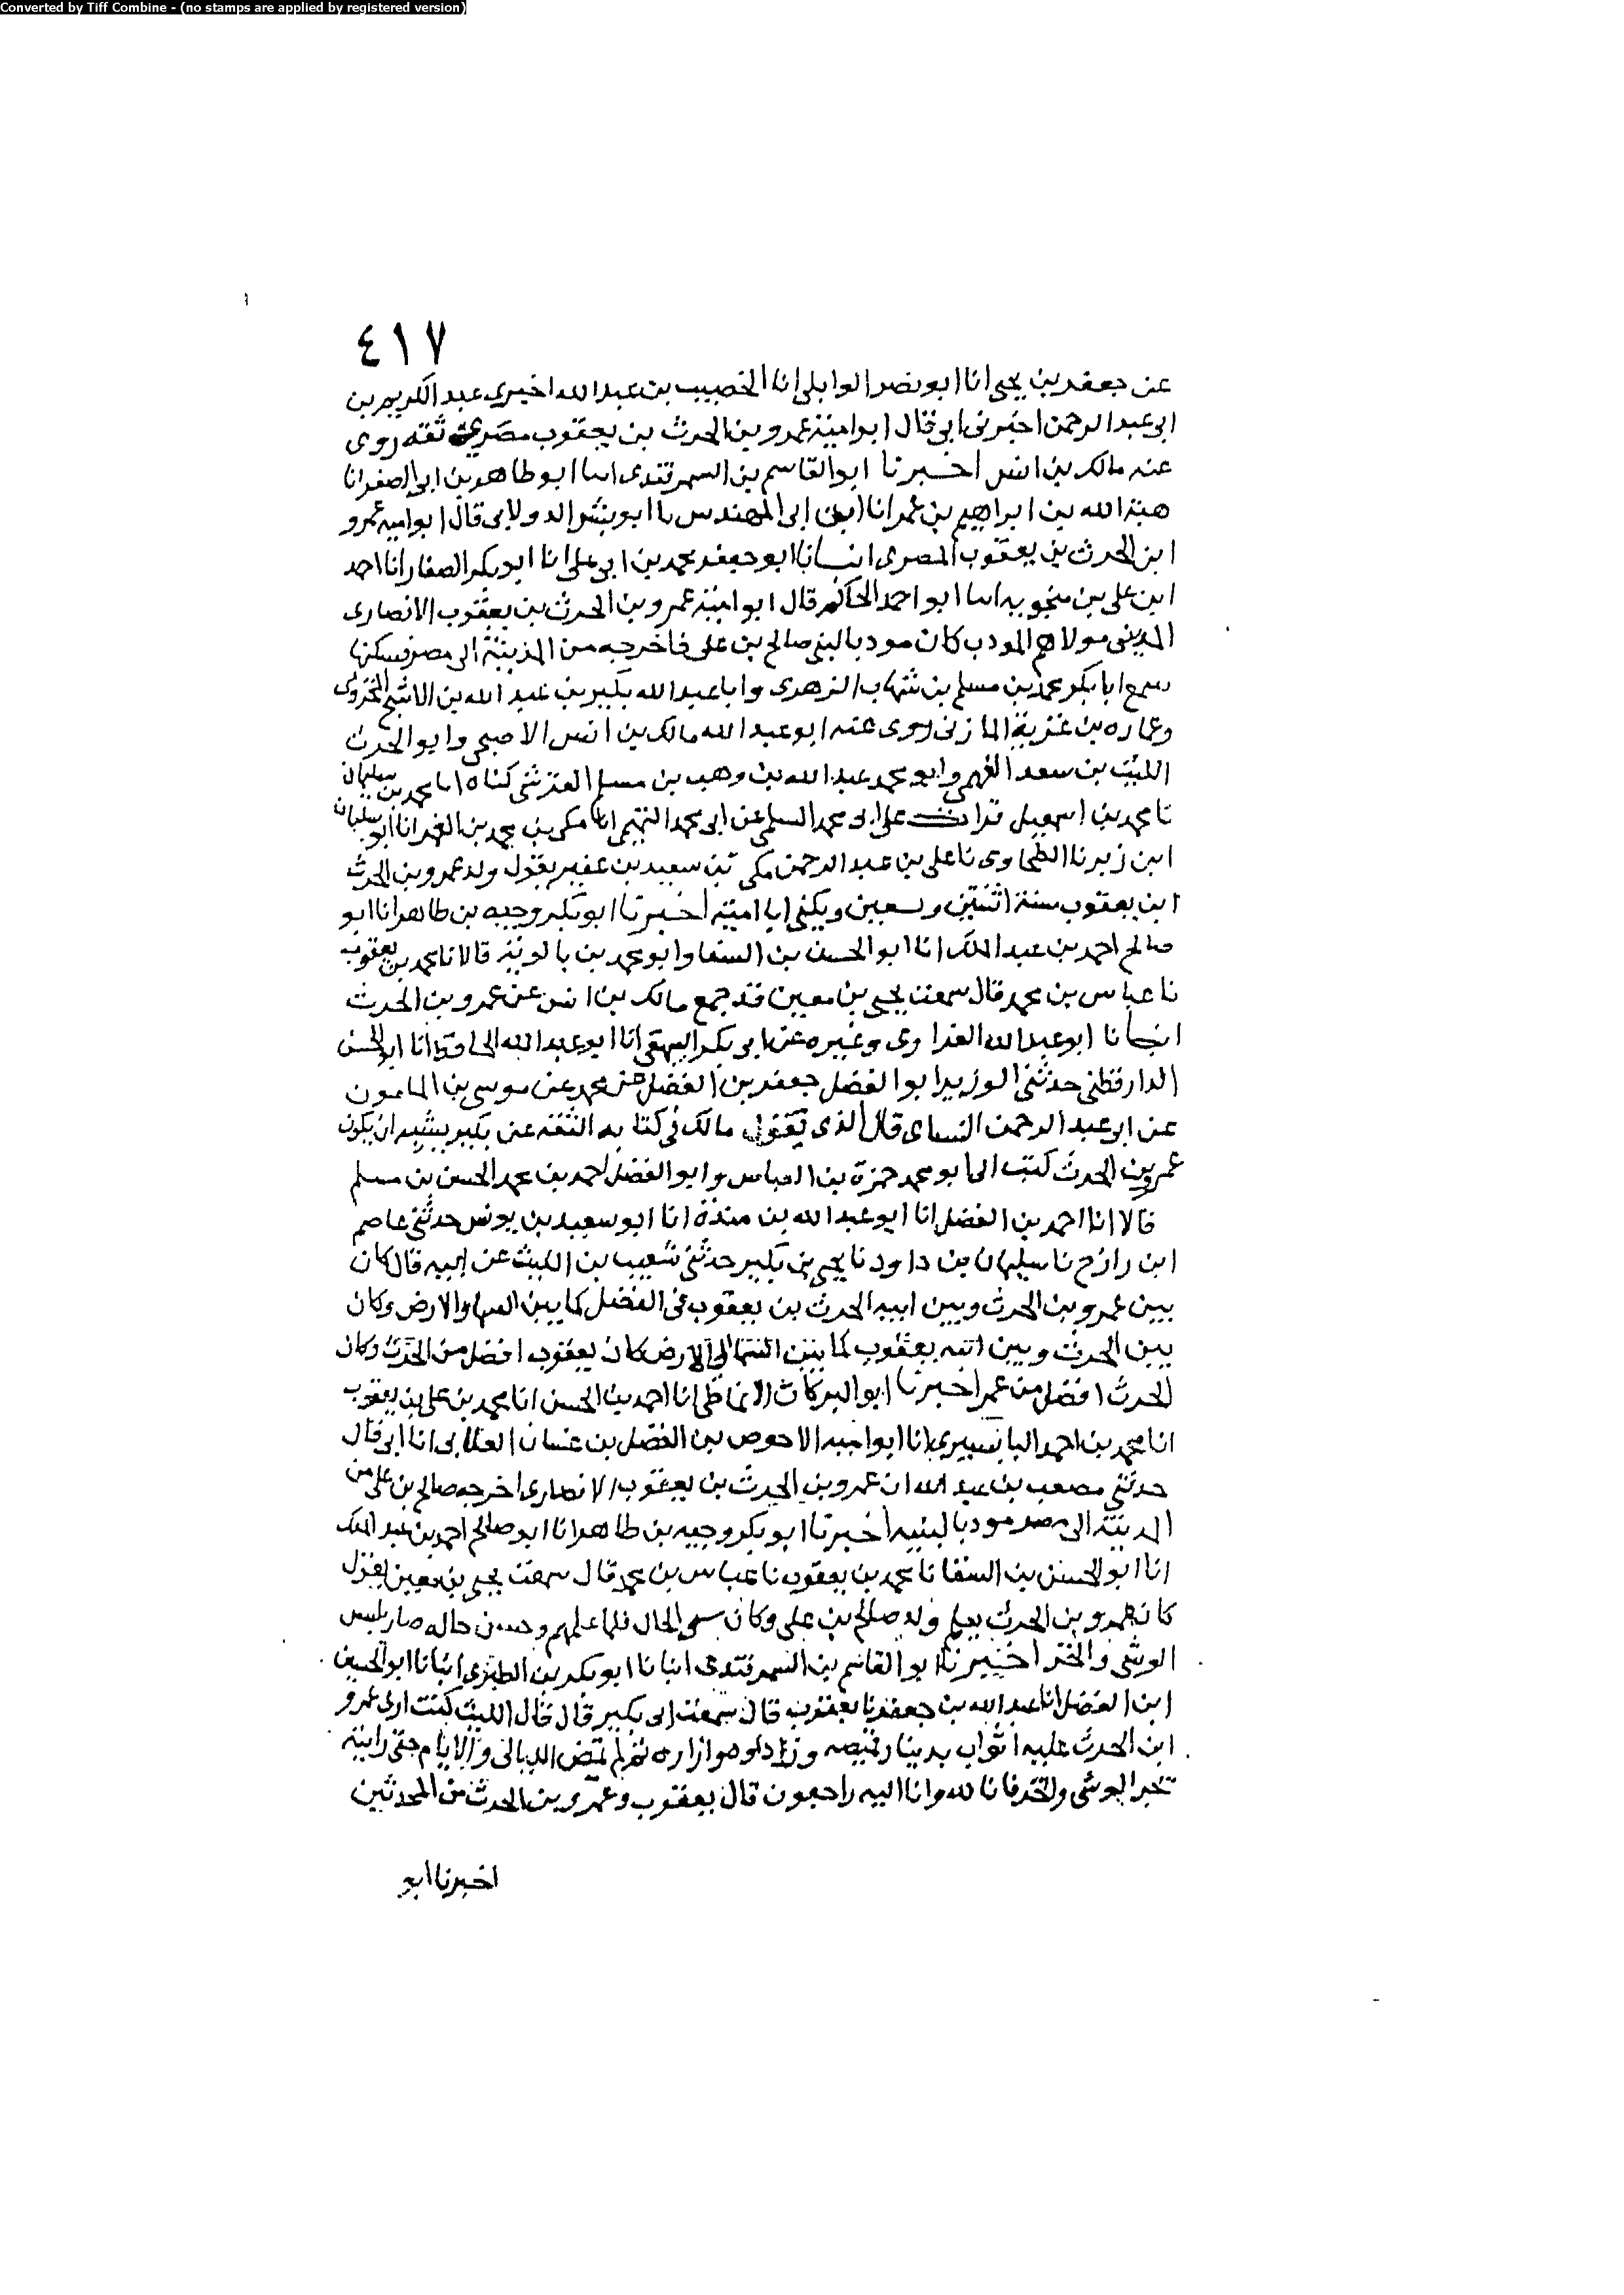 Converted by Tiff Combine - (no stamps are applied by registered version)
٤١٧
عن جعفر بن يحيى انا ابو نصر الوابلى انا الخصيب بن عبد الله اخبرى عبد الكريم بن
ابى عبد الرحمن اخبرنى ابى قال ابو امية عمرو بن الحرث بن يعقوب مصرى ثقه روى
عنه مالك بن انس اخبرنا ابو القاسم بن السمرقندى انا ابو طاهر بن ابى الصقر انا
هبة الله بن ابراهيم بن عمر انا ابو بكر المهندس نا ابو بشر الدولابى قال ابو اميه عمرو
ابن الحرث بن يعقوب المصرى انبانا ابو جعفر محمد بن ابى على انا ابو بكر الصفار انا احمد
ابن على بن منجويه انا ابو احمد الحاكم قال ابو امية عمرو بن الحرث بن يعقوب الانصارى
المدينى مولاهم المودب كان مودبا لبنى صالح بن على فاخرجه من المدينة الى مصر فسكنها
سمع ابا بكر محمد بن مسلم بن شهاب الزهرى وابا عبد الله بكير بن عبد الله بن الاشج المخزومى
وعماره بن غزية المازنى روى عنه ابو عبد الله مالك بن انس الاصبحى وابو الحرث
الليث بن سعد الفهمى وابو محمد عبد الله بن وهب بن مسلم القرشى كناه لنا محمد بن سليمان
نا محمد بن اسمعيل قرات على ابى محمد السلمى عن ابى محمد التميمى انا مكى بن محمد بن الغمر انا ابو سليمان
ابن زبر نا الطحاوى نا على بن عبد الرحمن سعيد بن عفير يقول ولد عمرو بن الحرث
ابن يعقوب سنة اثنتين وتسعين ويكنى ابا امية اخبرنا ابو بكر وجيه بن طاهر انا ابو
صالح احمد بن عبد الملك انا ابو الحسن بن السقا وابو محمد بن بالوية قالا نا محمد بن يعقوب
نا عباس بن محمد قال سمعت يحيى بن معين قد سمع مالك بن انس عن عمرو بن الحرث
انبانا ابو عبد الله الفراوى وغيره عن ابى بكر البيهقى انا ابو عبد الله الحافظ انا ابو الحسن
الدارقطنى حدثنى الوزير ابو الفضل جعفر بن الفضل عن محمد عن موسى بن المامون
عن ابى عبد الرحمن النساى قال الذى يقول مالك فى كتابه الثقه عن بكير يشبه ان يكون
عمرو بن الحرث كتب الى ابو محمد حمزة بن العباس وابو الفضل احمد بن محمد الحسن بن مسلم
قالا انا احمد بن الفضل انا ابو عبد الله بن مندة انا ابو سعيد بن يونس حدثنى عاصم
ابن رازح نا سليمان بن داود نا يحيى بن بكير حدثنى شعيب بن الليث عن ابيه قال كان
بين عمرو بن الحرث وبين ابيه الحرث بن يعقوب فى الفضل كما بين السما والارض وكان
بين الحرث وبين ابيه يعقوب كما بين السما الى الارض كان يعقوب افضل من الحرث وكان
الحرث افضل من عمر اخبرنا ابو البركات الانماطى انا احمد بن الحسن انا محمد بن على بن يعقوب
انا محمد بن احمد البابسيرى انا ابو اميه الاحوص بن الفضل بن غسان الغلابى انا ابى قال
حدثنى مصعب بن عبد الله ان عمرو بن الحرث بن يعقوب الانصارى اخرجه صالح بن على من
المدينة الى مصر مودبا لبنيه اخبرنا ابو بكر وجيه بن طاهر انا ابو صالح احمد بن عبد الملك
انا ابو الحسن بن السقا نا محمد بن يعقوب نا عباس بن محمد قال سمعت يحيى بن معين يقول
كان عمرو بن الحرث يعلم ولد صالح بن على وكان سى الحال فلما علمهم وحسن حاله صار يلبس
الوشى والخز اخبرنا ابو القاسم بن السمرقندى انبانا ابو بكر بن الطبرى انبانا ابو الحسين
ابن الفضل انا عبد الله بن جعفر نا يعقوب قال سمعت ابن بكير قال قال الليث كنت ارى عمرو
ابن الحرث عليه اثواب بدينار قميصه ورداوه وازاره ثم لم تمض الليالى والايام حتى رايته
تجر الوشى والخز فانا لله وانا اليه راجعون قال يعقوب وعمرو بن الحرث من المحدثين
اخبرنا ابو